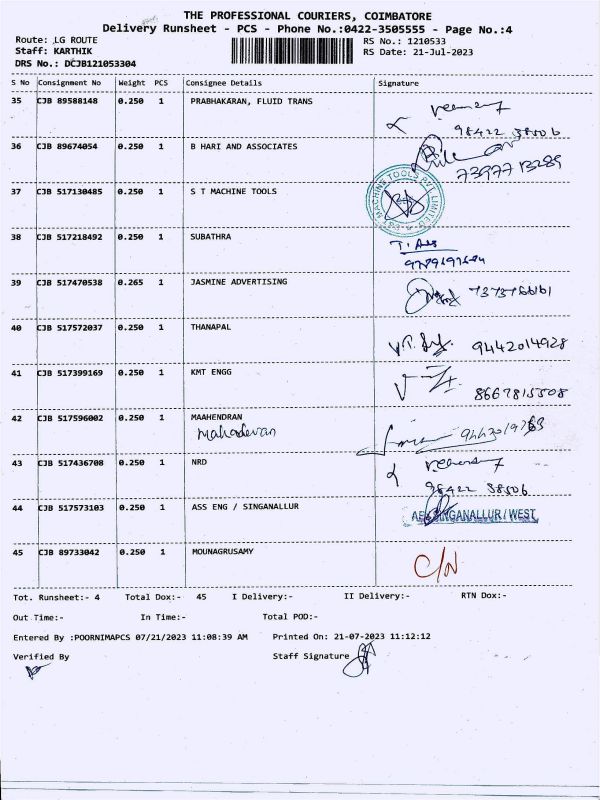 THE PROFESSIONAL COURIERS, COIMBATORE
Delivery Runsheet - PCS - Phone No.:0422-3505555 - Page No.:4
Route: LG ROUTE RS No.: 1210533
Staff: KARTHIK RS Date: 21-Jul-2023
DRS No.: DCJB121053304
S No Consignment No Weight PCS Consignee Details Signature
35 CJB 89588148 0.250 1 PRABHAKARAN, FLUID TRANS
98422 38506
36 CJB 89674054 0.250 1 B HARI AND ASSOCIATES
7397713289
37 CJB 517130485 0.250 1 S T MACHINE TOOLS
MACHINE TOOLS PVT LIMITED
38 CJB 517218492 0.250 1 SUBATHRA
39 CJB 517470538 0.265 1 JASMINE ADVERTISING
40 CJB 517572037 0.250 1 THANAPAL
9442014928
41 CJB 517399169 0.250 1 KMT ENGG
8667815508
42 CJB 517596002 0.250 1 MAAHENDRAN
Mahadevan
43 CJB 517436708 0.250 1 NRD
98422 38506
44 CJB 517573103 0.250 1 ASS ENG / SINGANALLUR
SINGANALLUR / WEST
45 CJB 89733042 0.250 1 MOUNAGRUSAMY
C/N
Tot. Runsheet:- 4 Total Dox:- 45 I Delivery:- II Delivery:- RTN Dox:-
Out Time:- In Time:- Total POD:-
Entered By :POORNIMAPCS 07/21/2023 11:08:39 AM Printed On: 21-07-2023 11:12:12
Verified By Staff Signature